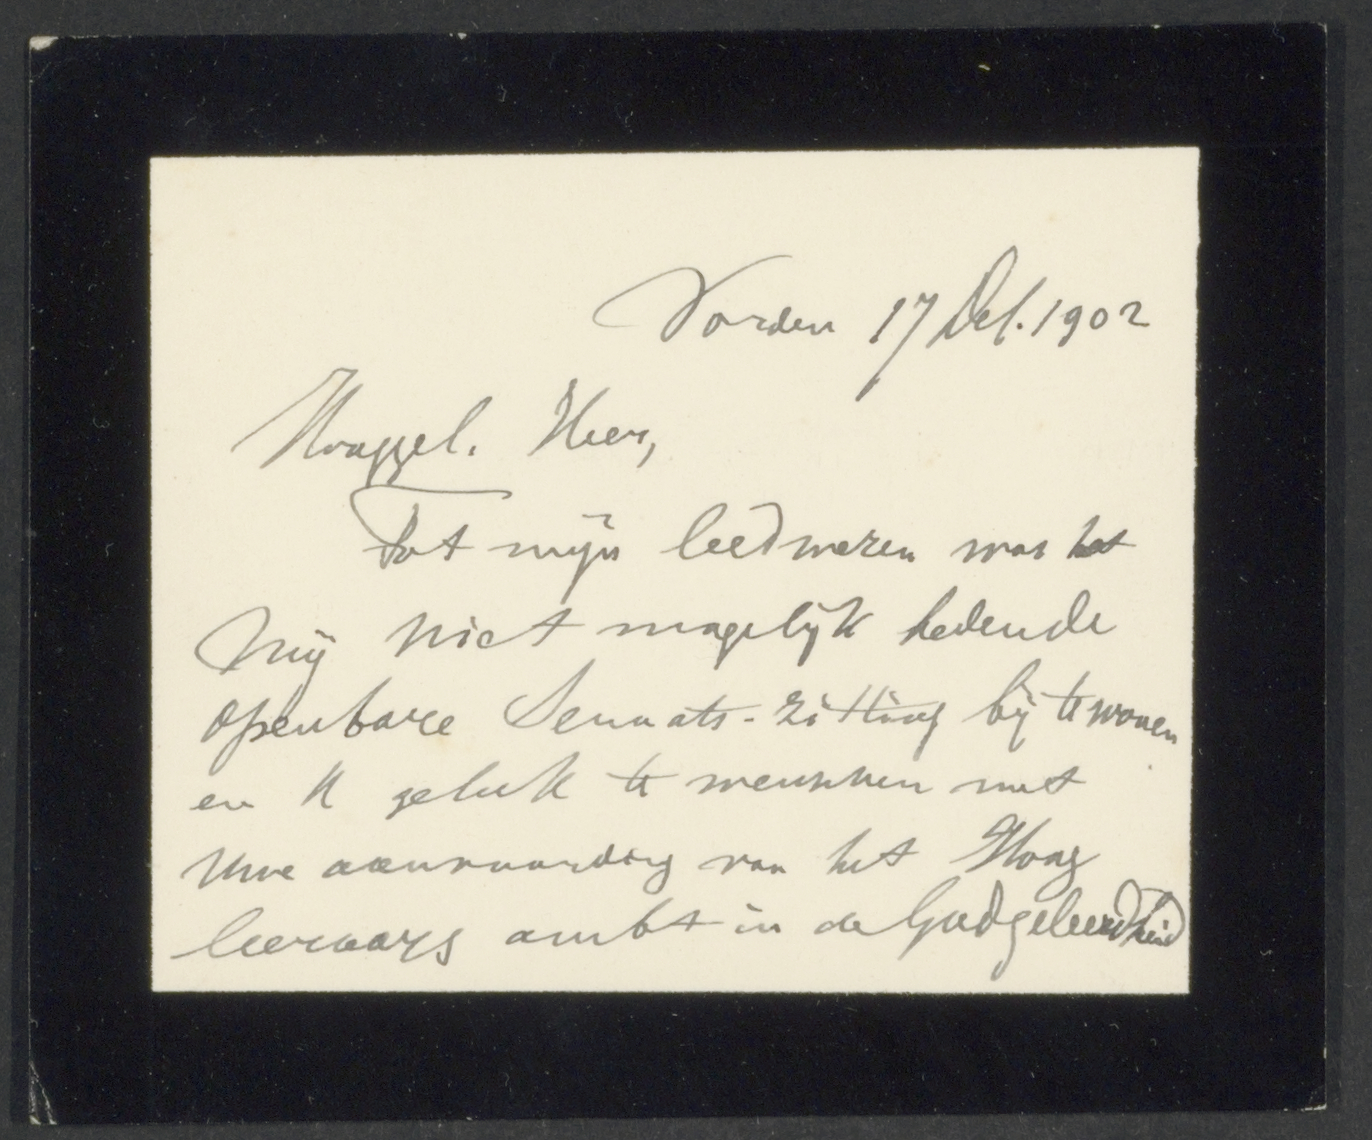 Vorden 17 Dec. 1902
Hooggel. Heer,
Tot mijn leedwezen was het
mij niet mogelijk heden de
openbare Senaats-zitting bij te wonen
en U geluk te wenschen met
Uwe aanvaarding van het Hoog
leeraars ambt in de Godgeleerdheid